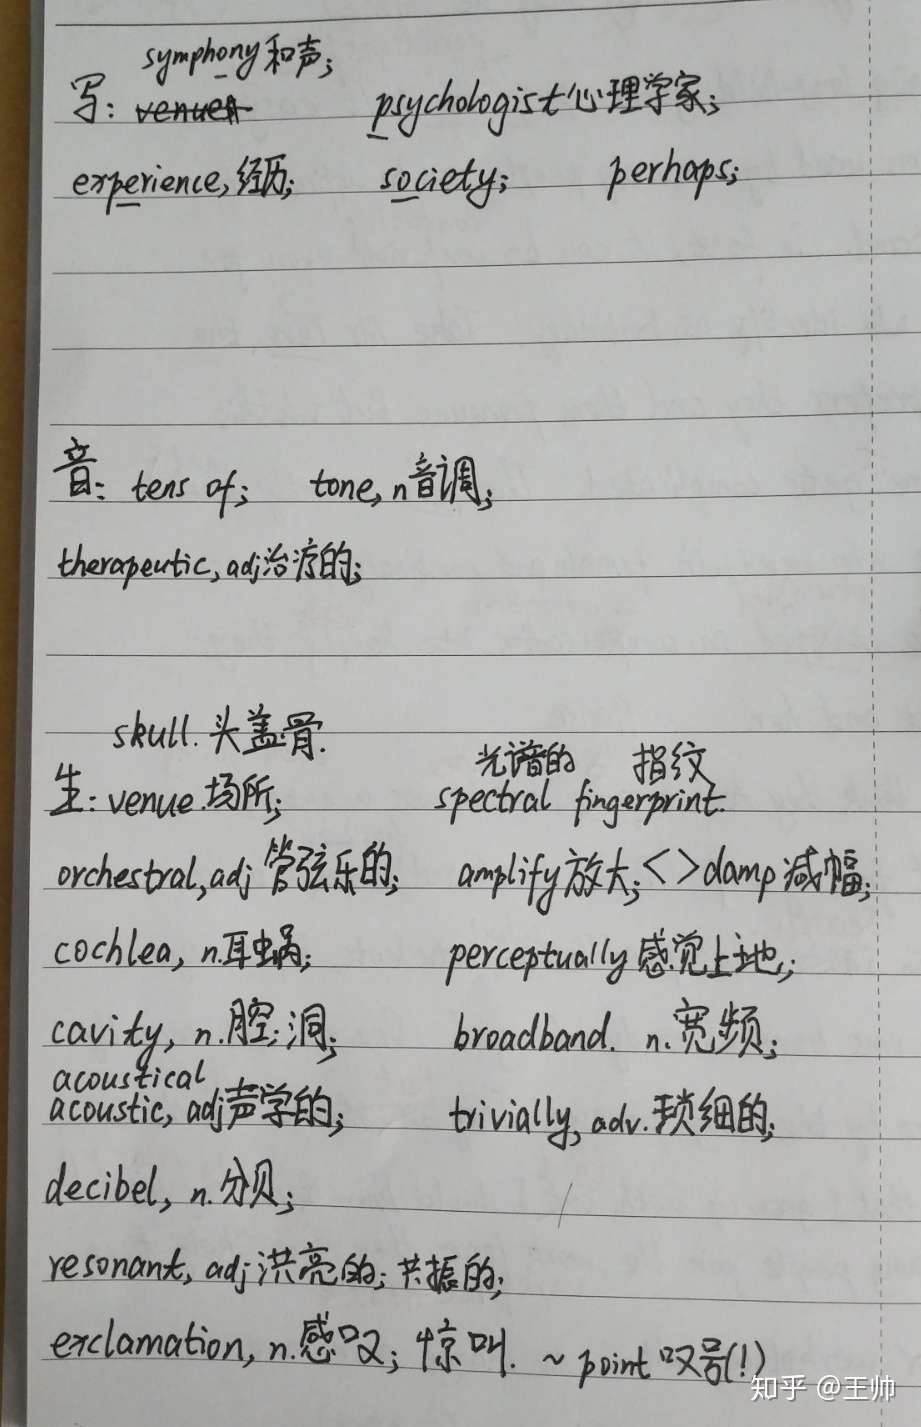 symphony 和声;
写: venues psychologist 心理学家;
experience, 经历; society; perhaps;
音: tens of; tone, n 音调;
therapeutic, adj 治疗的;
skull. 头盖骨.
光谱的 指纹
生: venue 场所; spectral fingerprint.
orchestral, adj 管弦乐的; amplify 放大; <>damp 减幅;
cochlea, n. 耳蜗; perceptually 感觉上地;
cavity, n. 腔; 洞; broadband. n. 宽频;
acoustical
acoustic, adj 声学的; trivially, adv. 琐细的;
decibel, n. 分贝;
resonant, adj 洪亮的; 共振的;
exclamation, n. 感叹; 惊叫. ~ point 叹号(!)
知乎 @王帅